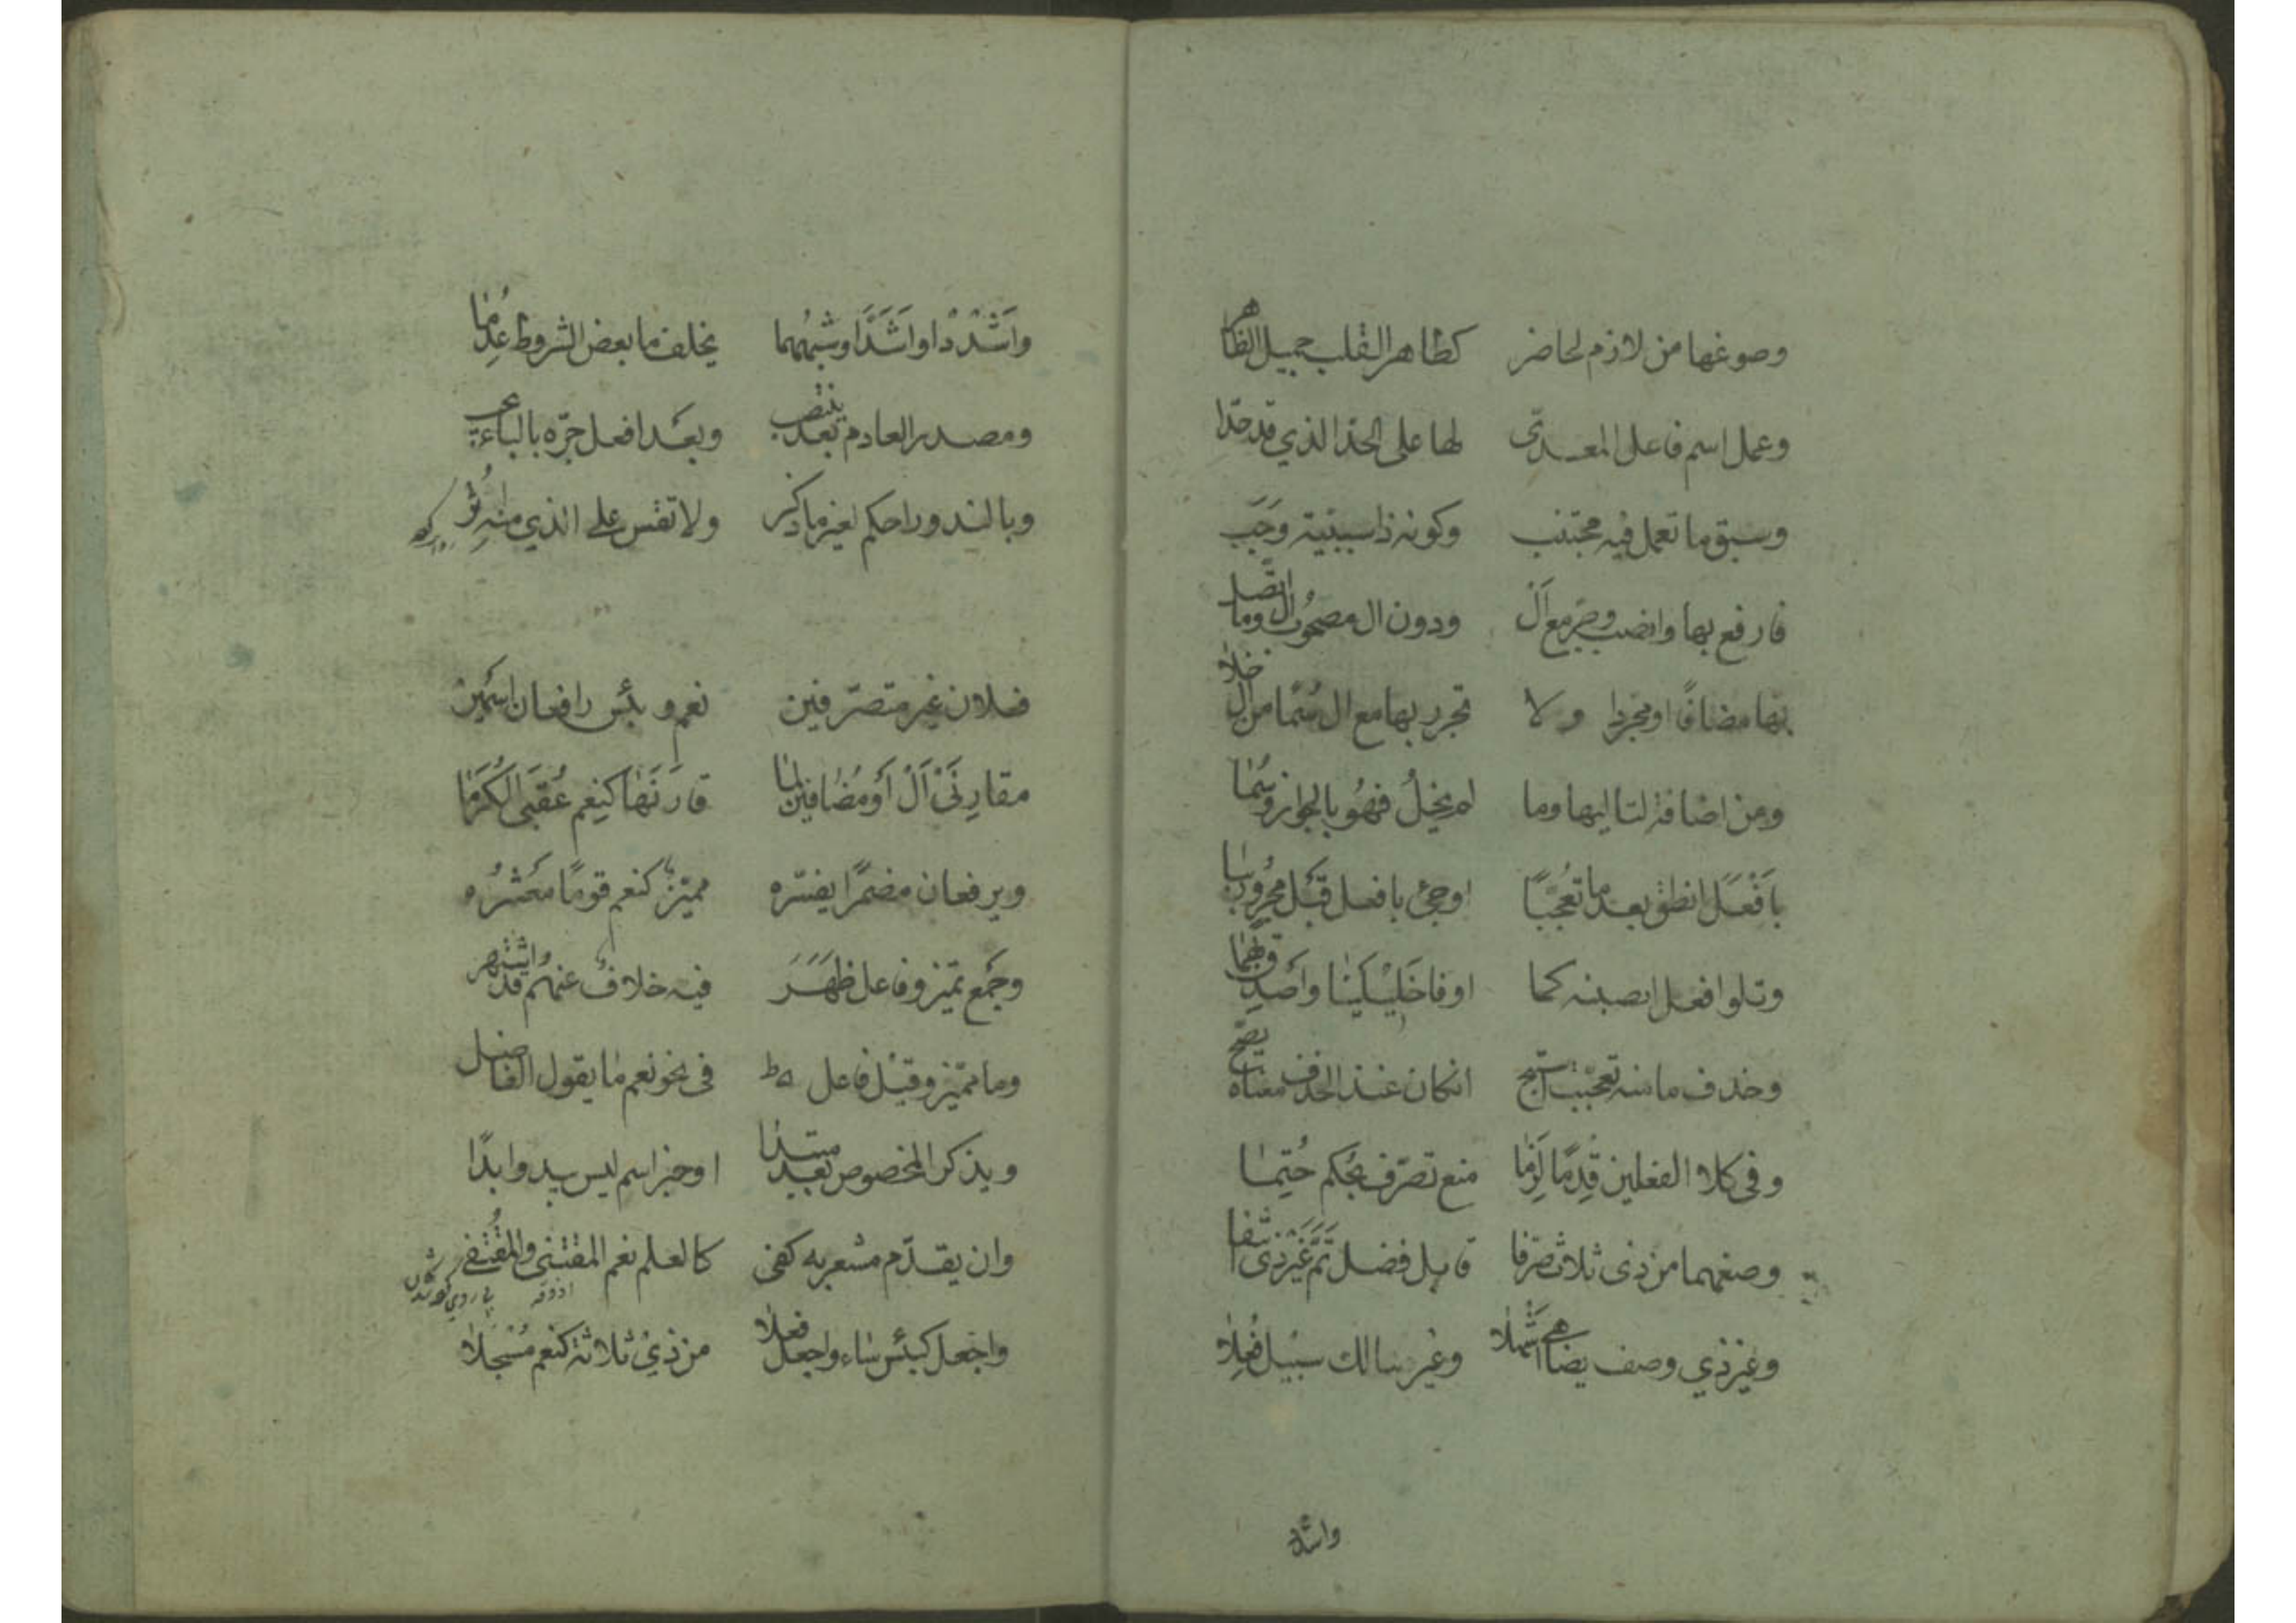 وصوغها من لازم لحاضر كطاهر القلب جميل الظاهر
وعمل اسم فاعل المعدّى لها على الحدّ الذي قد حدّا
وسبق ما تعمل فيه مجتنب وكونه ذا سببيّة وَجَب
فارفع بها وانصب وجرّ مع اَلْ ودون ال مصحُوبَ ال وما اتّصل
بها مضافًا او مجرّدا ولا تجرر بها مع ال سُمًا من ال خلا
ومن اضافةٍ لتاليها وما لم يخلُ فهُو بالجواز وُسِمٰا
بِاَفْعَلَ انطق بعد ما تعجّبًا اوجئ بافعل قَبْل مجرُورٍ ببا
وتلوا فعل انصبنه كما اوفا خَلِيْلَيْنٰا واَصْدِق بهمٰا
وحذف ما منه تعجّبت استبح انكان عند الحذف معناه يضح
وفي كلا الفعلين قِدْمًا لَزِمٰا منع تصرّف بحُكم حُتِمٰا
وصغهما من ذى ثلاث صرّفا قابل فضل تَمَّ غَيْر ذى انتفا
وغير ذي وصف يضاهي اَشْهلا وغير سالك سبيل فُعِلا
واشدد
واَشْدُدْ اواَشَدَّ اوشبهُهما يخلف ما بعض الشروط عدِمٰا
ومصدر العادم بعد ينتصب وبَعْد افعل جرّه بالباء يجب
وبالندور احكم لغير ما ذكر ولا تقس على الذي منه اُثِر
فعلان غير متصرّفين نعم وبئس رافعان اسمين
مقارِنَىْ اَلْ اَوْ مُضٰافين لمٰا قارَنَهٰا كنِعم عُقبَى الكُرَمٰا
ويرفعان مضمرًا يفسّره مميّز كنعم قومًا معشرُه
وجَمْع تميز وفاعل ظهَرَ فيه خلاف عنهم قد اشتهر
وما مميّز وقيل فاعل في نحو نعم ما يقول الفاضل
ويذكر المخصوص بعد مبتدا اوخبر اسم ليس يبدو ابدًا
وان يقدّم مشعر به كفى كالعلم نعم المقتنى والمُقْتفى
واجعل كبئس سٰاء واجعل فعلا من ذي ثلاثة كنعم مُسْجَلا